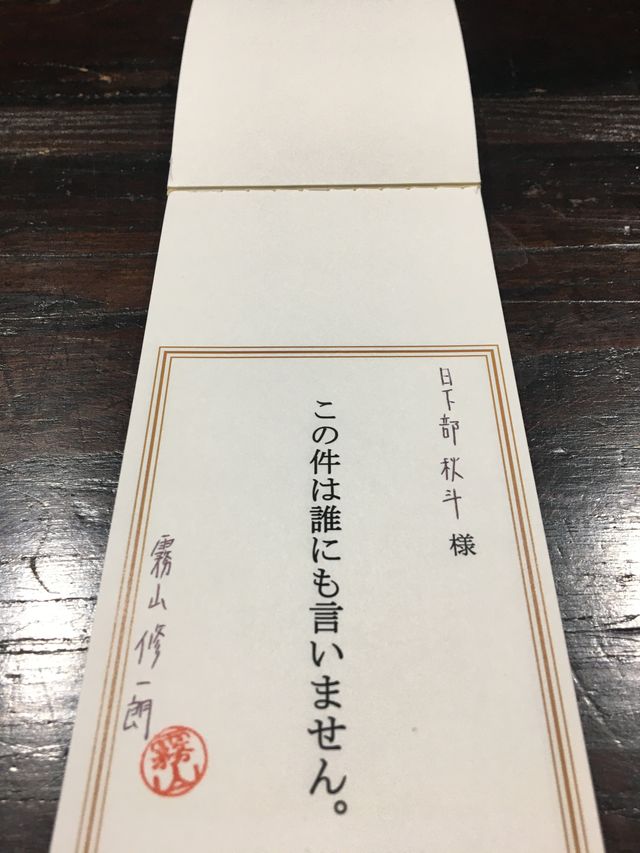 日下部 秋斗 様
この件は誰にも言いません。
霧山 修一朗
霧山